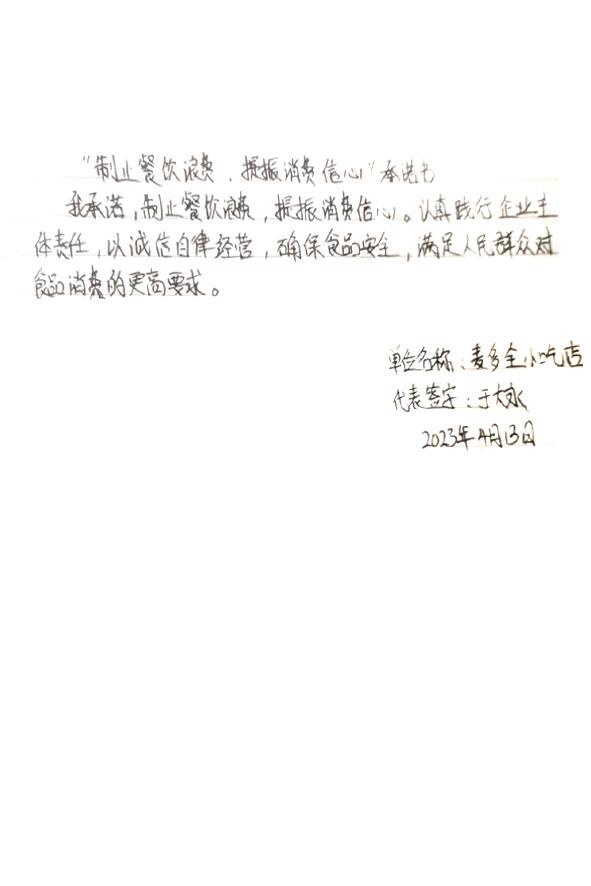 "制止餐饮浪费、提振消费信心"承诺书
我承诺,制止餐饮浪费,提振消费信心。认真践行企业主
体责任,以诚信自律经营,确保食品安全,满足人民群众对
食品消费的更高要求。
单位名称:麦多全小吃店
代表签字:于大永
2023年4月13日